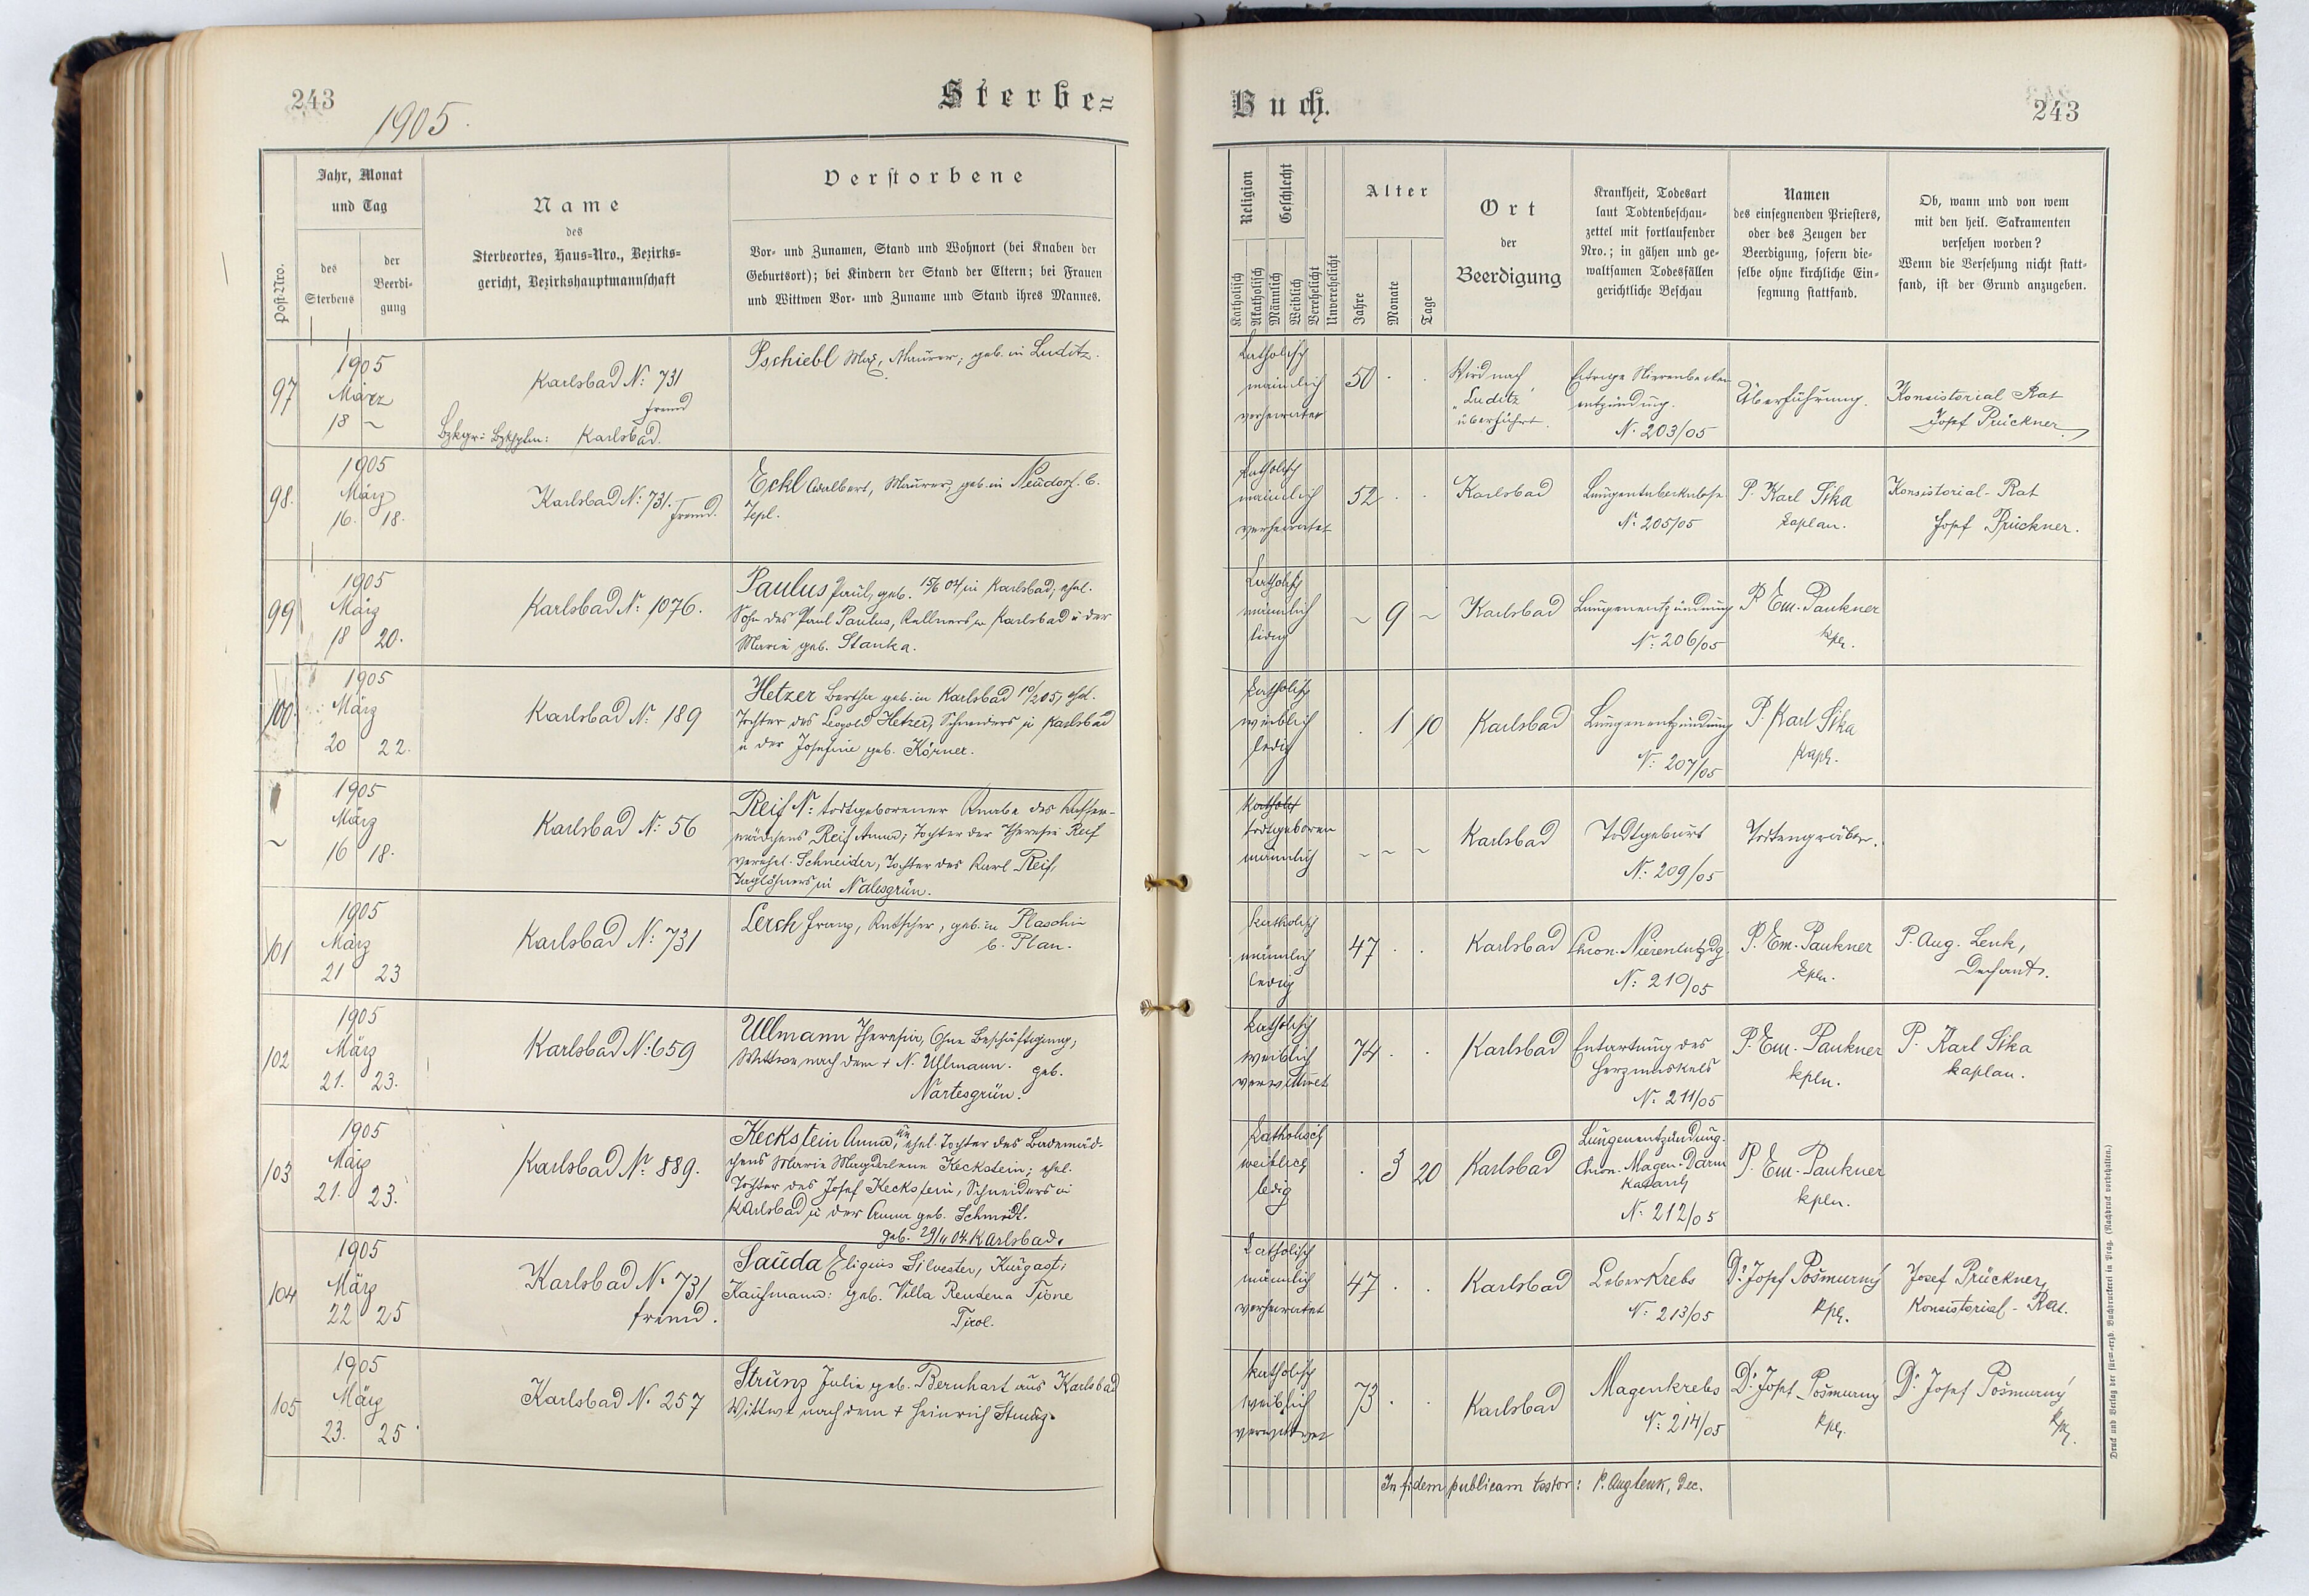 243
1905.
Sterbe-
Jahr, Monat
und Tag
Post-Nro.
des
Sterbens
der
Beerdi-
gung
Name
des
Sterbeortes, Haus-Nro., Bezirks-
gericht, Bezirkshauptmannschaft
Verstorbene
Vor- und Zunamen, Stand und Wohnort (bei Knaben der
Geburtsort); bei Kindern der Stand der Eltern; bei Frauen
und Wittwen Vor- und Zuname und Stand ihres Mannes.
97
1905
März
18 ~
Karlsbad N: 731
fremd
Karlsbad.
Pschiebl Max, Maurer; geb. in Luditz.
98.
1905
März
16. 18.
Karlsbad N: 731.
fremd.
Eckl Adalbert, Maurer, geb. in Neudorf b.
Tepl.
99
1905
März
18 20.
Karlsbad N: 1076.
Paulus Paul, geb. 15/6 04 in Karlsbad, ehel.
Sohn des Paul Paulus, Kellners in Karlsbad u der
Marie geb. Stanka.
100.
1905
März
20 22.
Karlsbad N: 189
Hetzer Bertha geb. in Karlsbad 10/2 05, ehel.
Tochter des Leopold Hetzer, Schneiders in Karlsbad
u der Josefine geb. Körner.
~
1905
März
16 18.
Karlsbad N: 56
Reif N: todtgeborener Knabe des
mädchens Reif Anna; Tochter der Theresia Reif
verehel. Schneider, Tochter des Karl Reif,
Taglöhners in Nalesgrün.
101
1905
März
21 23
Karlsbad N: 731
Lerch Franz, Kutscher, geb. in Plaschin
b. Plan.
102
1905
März
21. 23.
Karlsbad N: 659
Ullmann Theresia, Ohne Beschäftigung,
Wittwe nach dem + N. Ullmann. geb.
Nartesgrün.
103
1905
März
21. 23.
Karlsbad N: 889.
Keckstein Anna, unehel. Tochter des Bademäd-
chens Marie Magdalene Keckstein; ehel.
Tochter des Josef Keckstein, Schneiders in
Karlsbad u der Anna geb. Schmidt.
geb. 29/11 04 Karlsbad.
104
1905
März
22 25
Karlsbad N: 731
fremd.
Sauda Eligius Silvester, Kurgast;
Kaufmann: geb. Villa Rendena Tione
Tirol.
105
1905
März
23. 25
Karlsbad N: 257
Strunz Julie geb. Bernhart aus Karlsbad
Wittwe nach dem + Heinrich Strunz.
Buch.
243
Religion
Geschlecht
Katholisch
Akatholisch
Männlich
Weiblich
Verehelicht
Unverehelicht
Alter
Jahre
Monate
Tage
Ort
der
Beerdigung
Krankheit, Todesart
laut Todtenbeschau-
zettel mit fortlaufender
Nro.; in gähen und ge-
waltsamen Todesfällen
gerichtliche Beschau
Namen
des einsegnenden Priesters,
oder des Zeugen der
Beerdigung, sofern die-
selbe ohne kirchliche Ein-
segnung stattfand.
Ob, wann und von wem
mit den heil. Sakramenten
versehen worden?
Wenn die Versehung nicht statt-
fand, ist der Grund anzugeben.
katholisch
männlich
verheiratet
50 . .
Wird nach
Luditz
überführt.
Eitrige Nierenbecken
entzündung.
N. 203/05
Überführung.
Konsistorial Rat
Josef Prückner
katholisch
männlich
verheiratet
52 . .
Karlsbad
Lungentuberkulose
N: 205/05
P. Karl Sika
Kaplan.
Konsistorial-Rat
Josef Prückner.
katholisch
männlich
ledig
~ 9 ~
Karlsbad
Lungenentzündung
N: 206/05
P. Em. Paukner
kpl.
katholisch
weiblich
ledig
. 1 10
Karlsbad
Lungenentzündung
N: 207/05
P. Karl Sika
Kapl.
kathol
todtgeboren
männlich
~ ~ ~
Karlsbad
Todtgeburt
N: 209/05
Todtengräber.
katholisch
männlich
ledig
47 . .
Karlsbad
Chron. Nierentzdg.
N: 210/05
P. Em. Paukner
kpln.
P. Aug. Lenk,
Dechant.
katholisch
weiblich
verwittwet
74 . .
Karlsbad
Entartung des
Herzmuskels
N: 211/05
P. Em. Paukner
kpln.
P. Karl Sika
Kaplan.
katholisch
weiblich
ledig
. 3 20
Karlsbad
Lungenentzündung.
Chron. Magen-Darm
katarrh
N: 212/05
P. Em. Paukner
kpln.
katholisch
männlich
verheiratet
47 . .
Karlsbad
Leberkrebs
N: 213/05
Dr. Josef Pošmurný
kpl.
Josef Prückner,
Konsistorial-Rat.
katholisch
weiblich
verwittwet
73 . .
Karlsbad
Magenkrebs
N: 214/05
Dr. Josef Pošmurný
kpl.
Dr. Josef Pošmurný
kpl.
In fidem publicam testor: P. Aug Lenk, Dec.
Druck und Verlag der fürst-erzb. Buchdruckerei in Prag. (Nachdruck vorbehalten.)